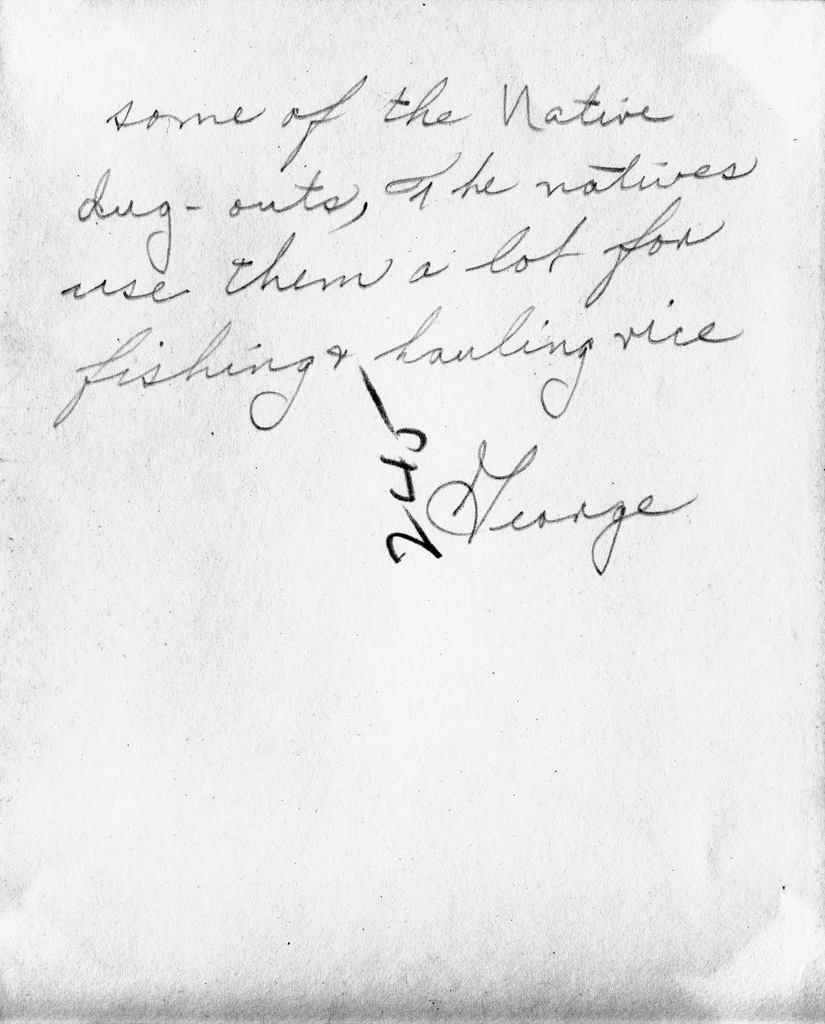 some of the Native
dug-outs, The natives
use them a lot for
fishing & hauling rice
George
245